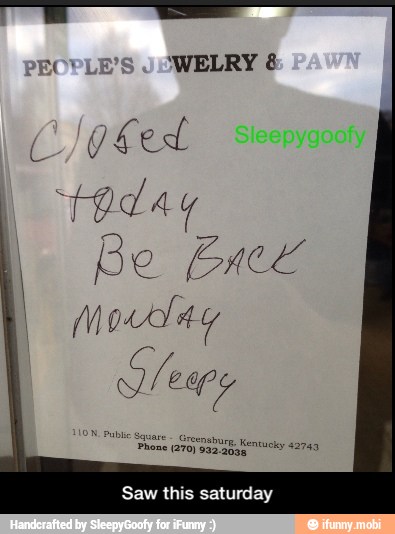 PEOPLE'S JEWELRY & PAWN
Closed
Sleepygoofy
today
Be BACK
Monday
Sleepy
110 N. Public Square - Greensburg, Kentucky 42743
Phone (270) 932-2038
Saw this saturday
Handcrafted by SleepyGoofy for iFunny :)
ifunny.mobi